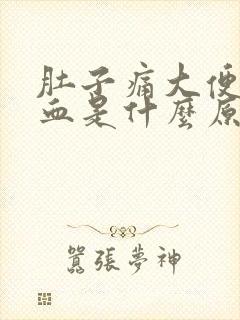 肚子痛大便
血是什麼原
囂張夢神